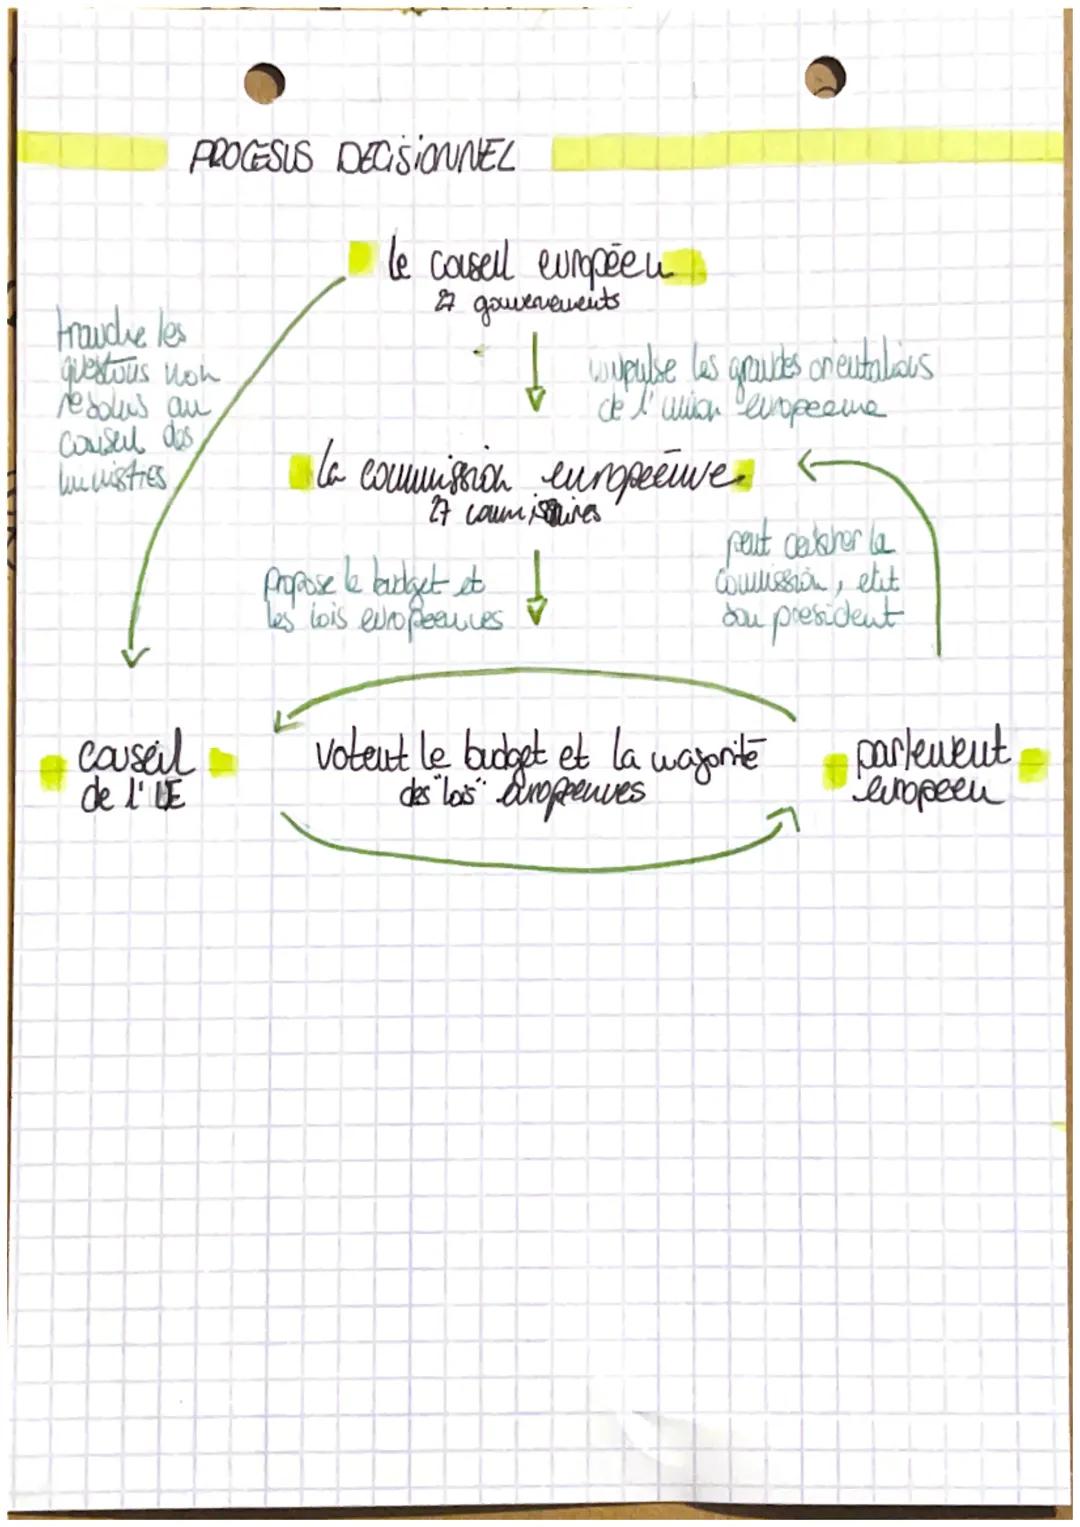 PROCESUS DECISIONNEL
le conseil européen
27 gouvernements
tranche les
questions non
resolus au
conseil des
ministres
impulse les grandes orientations
de l'union europeenne
la commission européenne
27 commissaires
propose le budget et
les lois europeennes
peut censurer la
commission, elit
son president
conseil
de l'UE
votent le budget et la majorité
des "lois" europeennes
parlement
europeen